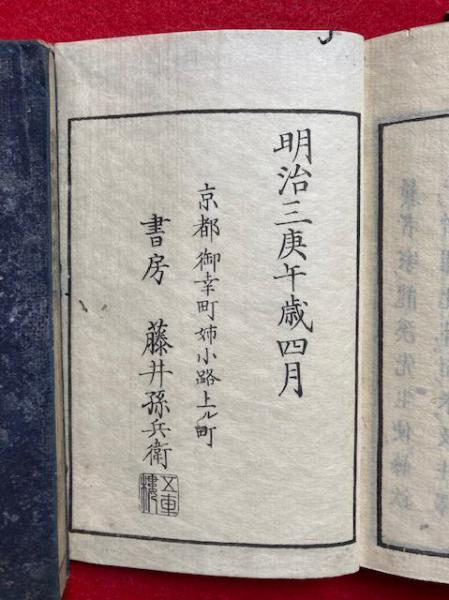 明治三庚午歳四月
京都御幸町姉小路上ル町
書房 藤井孫兵衛
五車樓